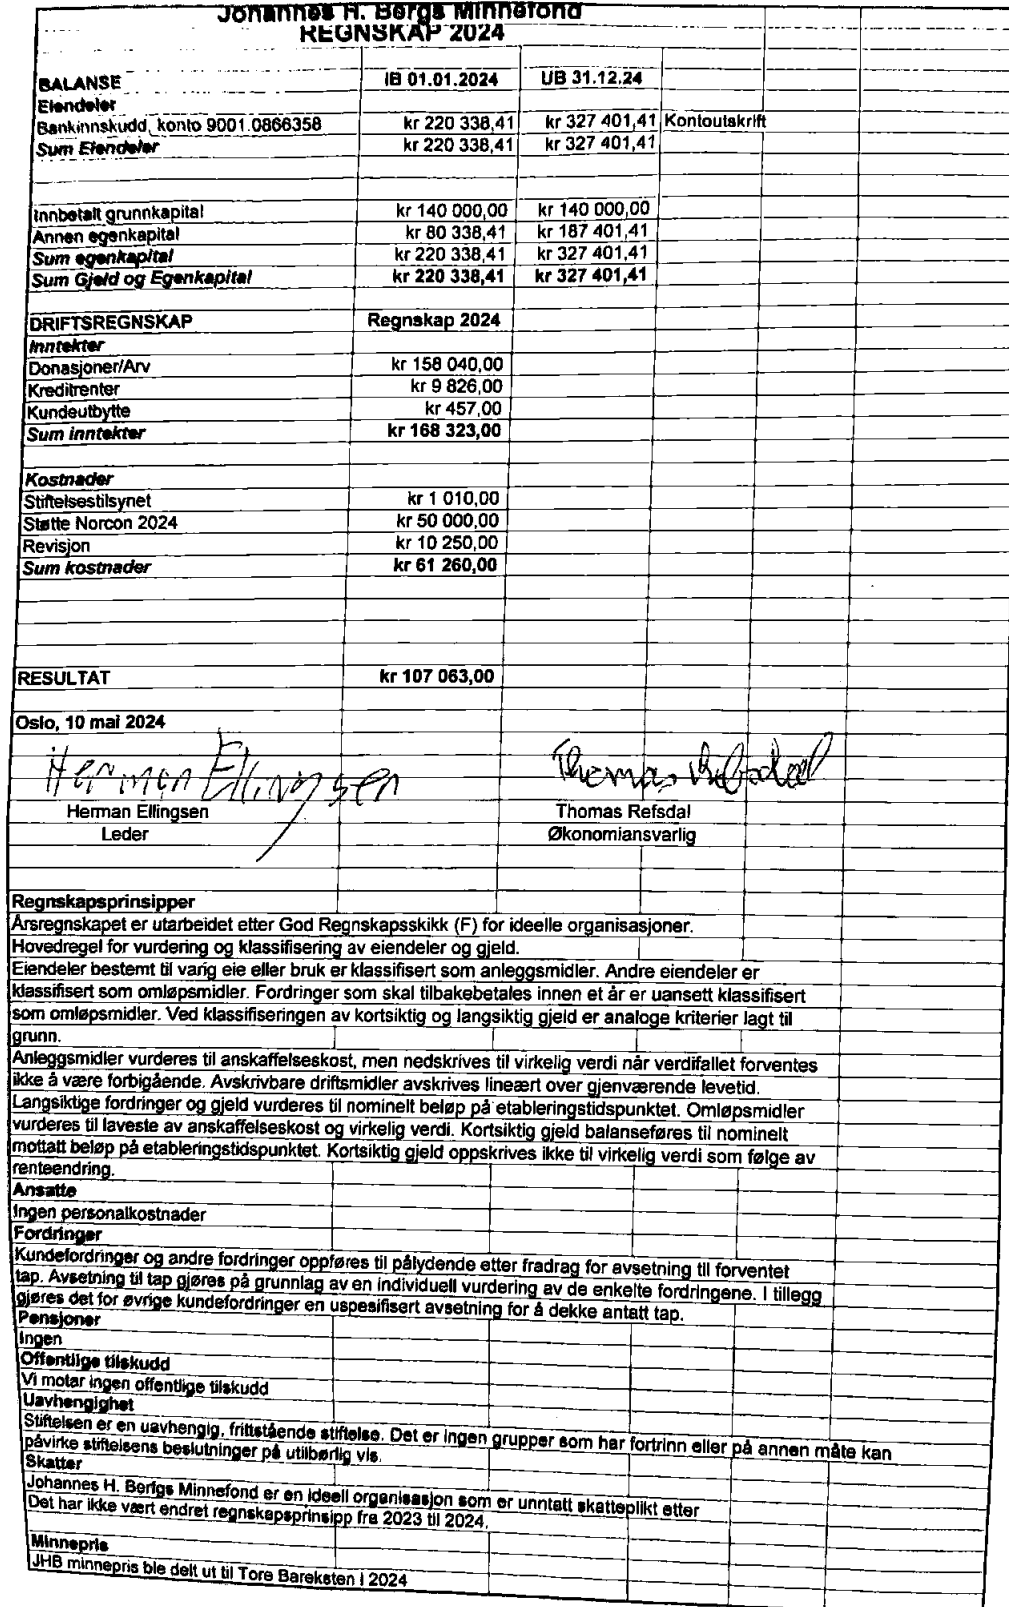 Johannes H. Bergs Minnefond
REGNSKAP 2024
BALANSE IB 01.01.2024 UB 31.12.24
Eiendeler
Bankinnskudd, konto 9001.0866358 kr 220 338,41 kr 327 401,41 Kontoutskrift
Sum Eiendeler kr 220 338,41 kr 327 401,41
Innbetalt grunnkapital kr 140 000,00 kr 140 000,00
Annen egenkapital kr 80 338,41 kr 187 401,41
Sum egenkapital kr 220 338,41 kr 327 401,41
Sum Gjeld og Egenkapital kr 220 338,41 kr 327 401,41
DRIFTSREGNSKAP Regnskap 2024
Inntekter
Donasjoner/Arv kr 158 040,00
Kreditrenter kr 9 826,00
Kundeutbytte kr 457,00
Sum inntekter kr 168 323,00
Kostnader
Stiftelsestilsynet kr 1 010,00
Støtte Norcon 2024 kr 50 000,00
Revisjon kr 10 250,00
Sum kostnader kr 61 260,00
RESULTAT kr 107 063,00
Oslo, 10 mai 2024
Herman Ellingsen Thomas Refsdal
Herman Ellingsen Thomas Refsdal
Leder Økonomiansvarlig
Regnskapsprinsipper
Årsregnskapet er utarbeidet etter God Regnskapsskikk (F) for ideelle organisasjoner.
Hovedregel for vurdering og klassifisering av eiendeler og gjeld.
Eiendeler bestemt til varig eie eller bruk er klassifisert som anleggsmidler. Andre eiendeler er
klassifisert som omløpsmidler. Fordringer som skal tilbakebetales innen et år er uansett klassifisert
som omløpsmidler. Ved klassifiseringen av kortsiktig og langsiktig gjeld er analoge kriterier lagt til
grunn.
Anleggsmidler vurderes til anskaffelseskost, men nedskrives til virkelig verdi når verdifallet forventes
ikke å være forbigående. Avskrivbare driftsmidler avskrives lineært over gjenværende levetid.
Langsiktige fordringer og gjeld vurderes til nominelt beløp på etableringstidspunktet. Omløpsmidler
vurderes til laveste av anskaffelseskost og virkelig verdi. Kortsiktig gjeld balanseføres til nominelt
mottatt beløp på etableringstidspunktet. Kortsiktig gjeld oppskrives ikke til virkelig verdi som følge av
renteendring.
Ansatte
Ingen personalkostnader
Fordringer
Kundefordringer og andre fordringer oppføres til pålydende etter fradrag for avsetning til forventet
tap. Avsetning til tap gjøres på grunnlag av en individuell vurdering av de enkelte fordringene. I tillegg
gjøres det for øvrige kundefordringer en uspesifisert avsetning for å dekke antatt tap.
Pensjoner
Ingen
Offentlige tilskudd
Vi motar ingen offentlige tilskudd
Uavhengighet
Stiftelsen er en uavhengig, frittstående stiftelse. Det er ingen grupper som har fortrinn eller på annen måte kan
påvirke stiftelsens beslutninger på utilbørlig vis.
Skatter
Johannes H. Berfgs Minnefond er en ideell organisasjon som er unntatt skatteplikt etter
Det har ikke vært endret regnskapsprinsipp fra 2023 til 2024.
Minnepris
JHB minnepris ble delt ut til Tore Bareksten i 2024